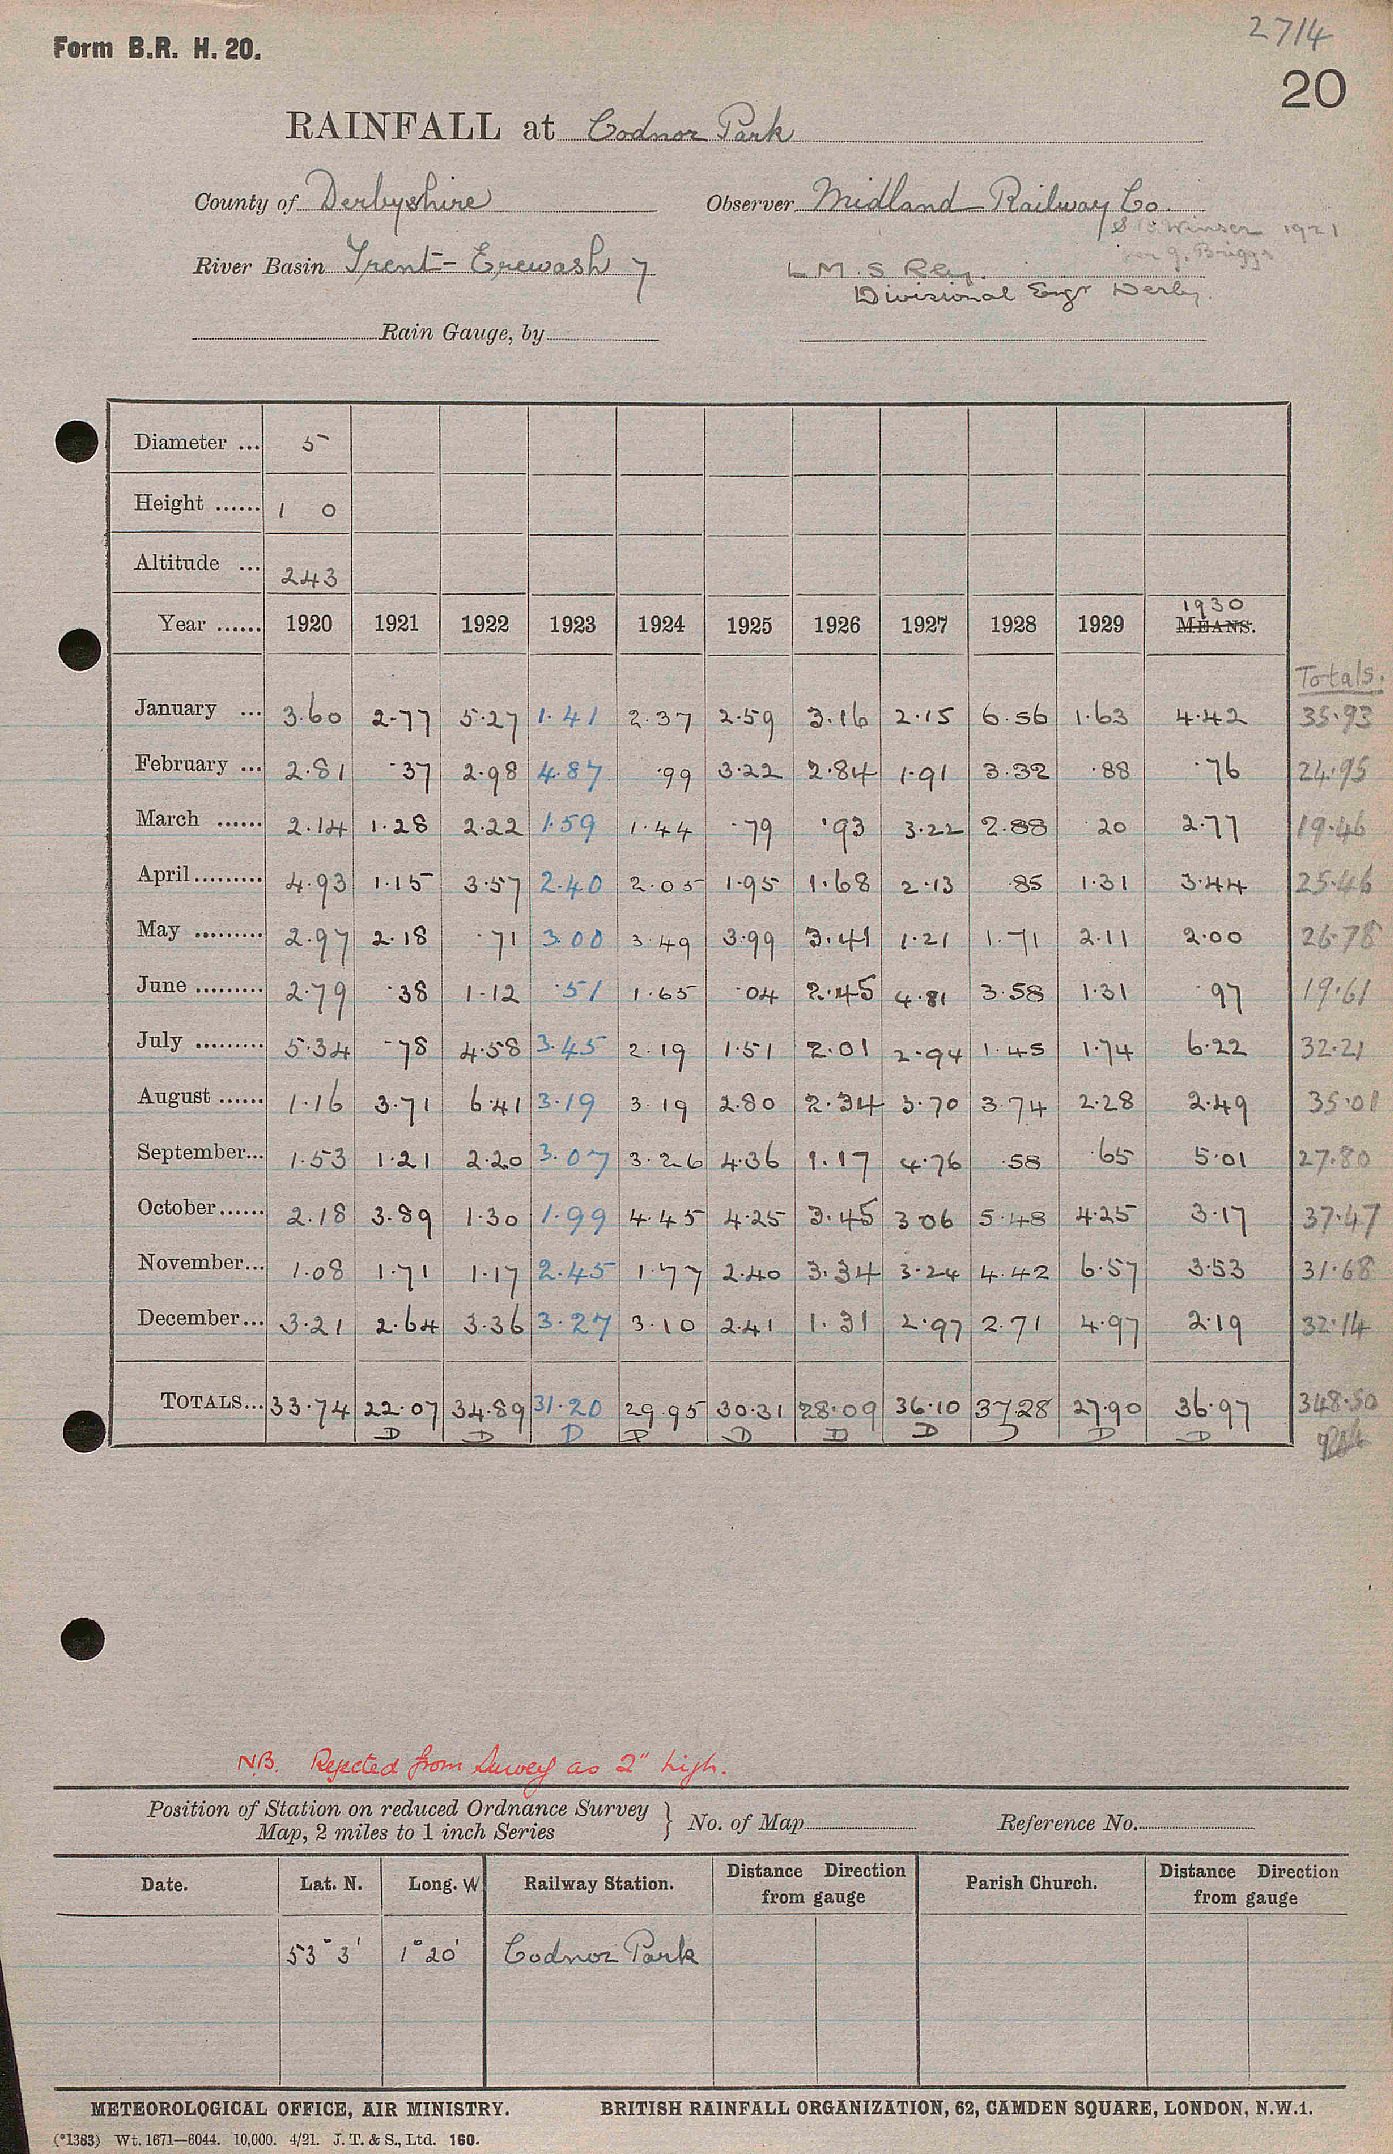 2714
Form B.R. H. 20.
20
RAINFALL at Codnor Park
County of Derbyshire Observer Midland Railway Co.
Winser 1921
J. Briggs
River Basin Trent - Erewash 7 L M. S Rly.
Divisional Engr Derby.
Rain Gauge, by
Diameter ... 5
Height ...... 1 0
Altitude ... 243
1930
Year ...... 1920 1921 1922 1923 1924 1925 1926 1927 1928 1929 MEANS.
Totals.
January ... 3.60 2.77 5.27 1.41 2.37 2.59 3.16 2.15 6.56 1.63 4.42 35.93
February ... 2.81 .37 2.98 4.87 .99 3.22 2.84 1.91 3.32 .88 .76 24.95
March ...... 2.14 1.28 2.22 1.59 1.44 .79 .93 3.22 2.88 20 2.77 19.46
April......... 4.93 1.15 3.57 2.40 2.05 1.95 1.68 2.13 .85 1.31 3.44 25.46
May ......... 2.97 2.18 .71 3.00 3.49 3.99 3.41 1.21 1.71 2.11 2.00 26.78
June ......... 2.79 .38 1.12 .51 1.65 .04 2.45 4.81 3.58 1.31 .97 19.61
July ......... 5.34 .78 4.58 3.45 2.19 1.51 2.01 2.94 1.45 1.74 6.22 32.21
August ...... 1.16 3.71 6.41 3.19 3.19 2.80 2.34 3.70 3.74 2.28 2.49 35.01
September... 1.53 1.21 2.20 3.07 3.26 4.36 1.17 4.76 .58 .65 5.01 27.80
October...... 2.18 3.89 1.30 1.99 4.45 4.25 3.45 3 06 5.48 4.25 3.17 37.47
November... 1.08 1.71 1.17 2.45 1.77 2.40 3.34 3.24 4.42 6.57 3.53 31.68
December... 3.21 2.64 3.36 3.27 3.10 2.41 1.31 2.97 2.71 4.97 2.19 32.14
TOTALS... 33.74 22.07 34.89 31.20 29.95 30.31 28.09 36.10 37.28 27.90 36.97 348.50
D D D D D D D D D
N.B. Rejected from Survey as 2" high.
Position of Station on reduced Ordnance Survey
Map, 2 miles to 1 inch Series } No. of Map Reference No.
Date. Lat. N. Long. W Railway Station. Distance Direction from gauge Parish Church. Distance Direction from gauge
53° 3' 1° 20' Codnor Park
METEOROLOGICAL OFFICE, AIR MINISTRY. BRITISH RAINFALL ORGANIZATION, 62, CAMDEN SQUARE, LONDON, N.W.1.
(*1383) Wt. 1671—6044. 10,000. 4/21. J. T. & S., Ltd. 160.